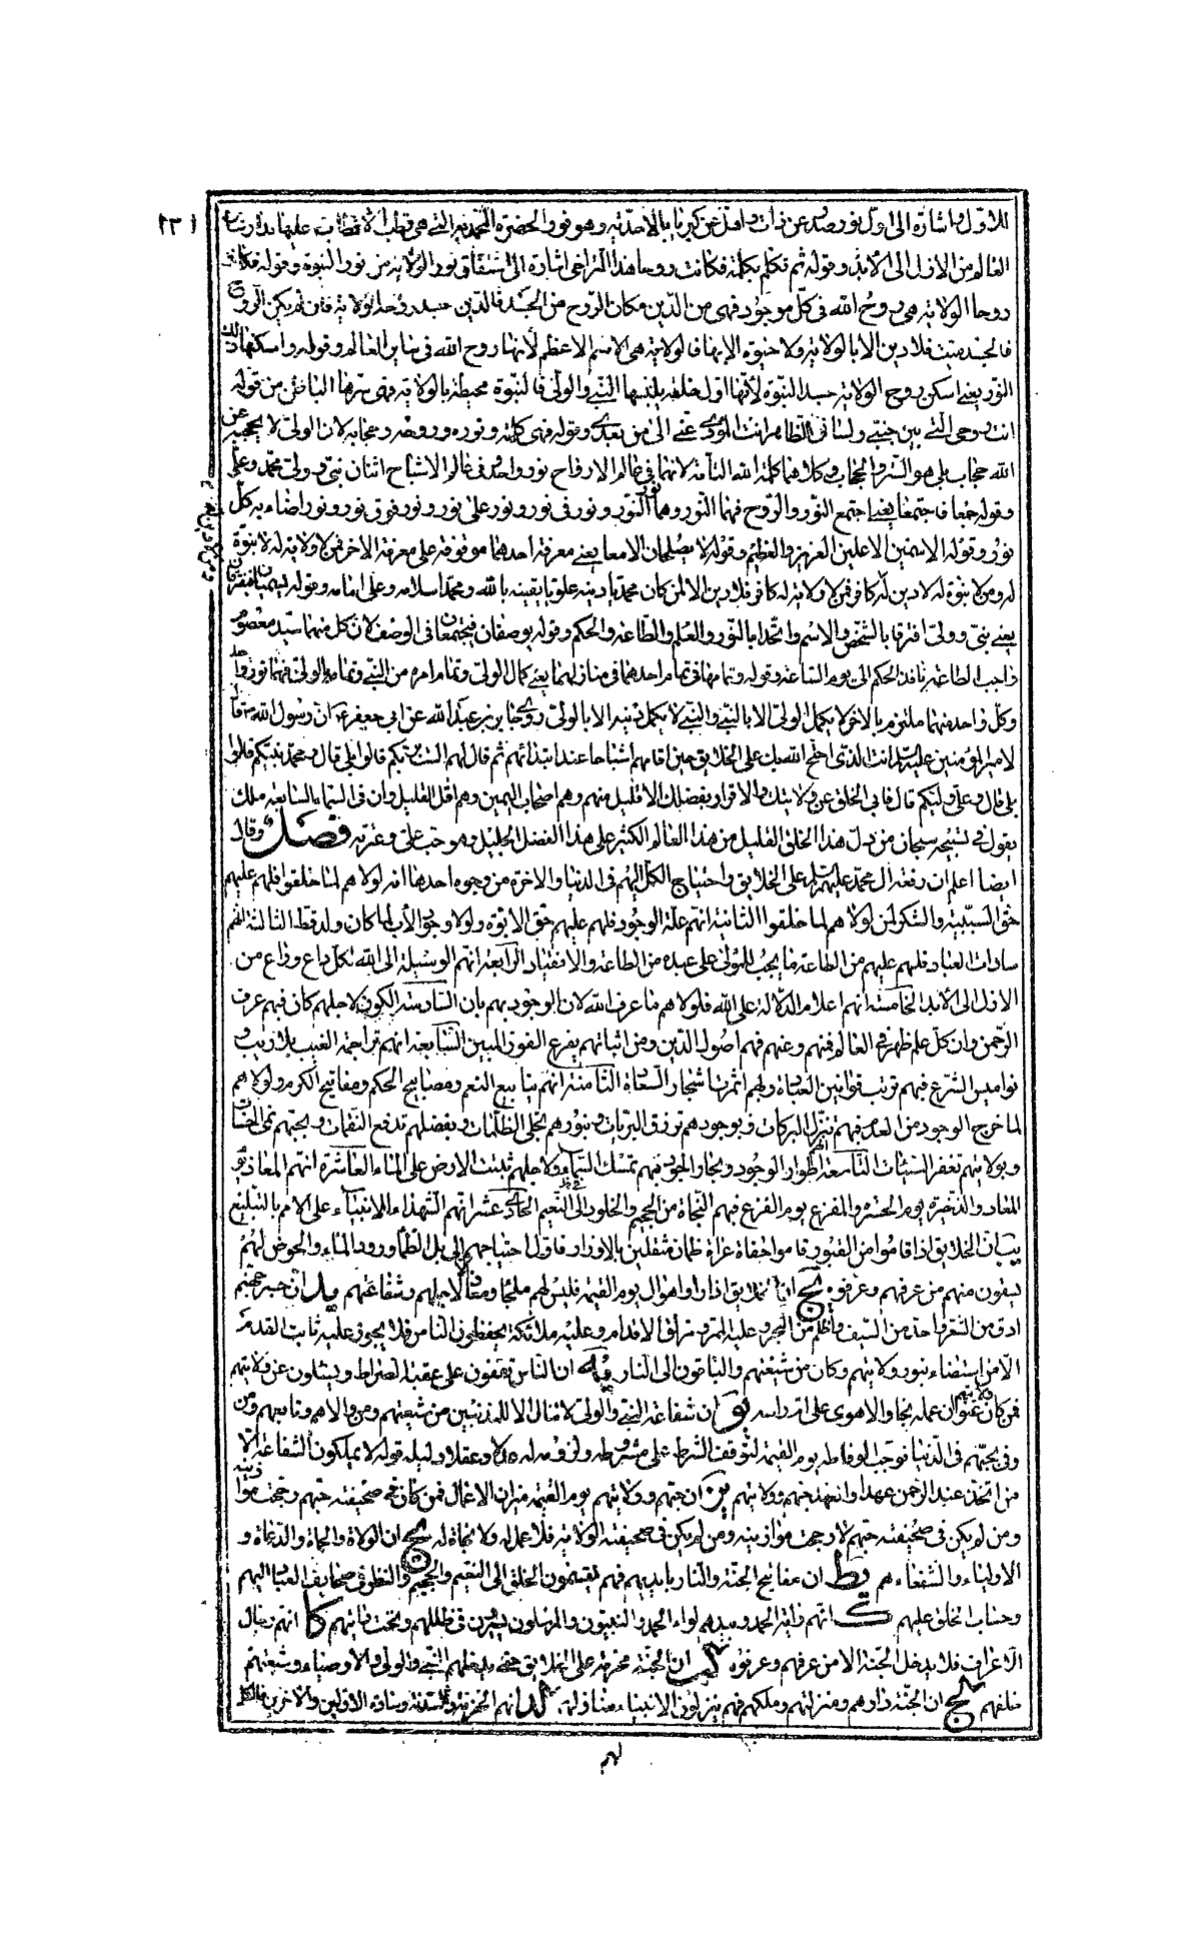 ١٣١
للاول واشارة الى اول نور صدر عن ذات واهل عن كبريا بالاحديه وهو نور الحضرة المحمدية التى هى قطب الاقطاب عليها مدار
العالم من الازل الى الابد وقوله ثم تكلم بكلمة فكانت روحا هذا المراعى اشارة الى اشتقاق نور الولاية من نور النبوة وقوله فكانت
روحا الولاية هى روح الله فى كل موجود فهى من الدين مكان الروح من الجسد فالدين جسد روحه الولاية فان لم يكن الروح
فالجسد ميت فلا دين الا بالولاية ولا حيوة الا بها فالولاية هى الاسم الاعظم لانها روح الله فى ساير العالم وقوله واسكنها ذلك
النور يعنى اسكن روح الولاية جسد النبوة لانها اول خلعة يلبسها النبى والولى فالنبوة محيطة بالولاية وهى سرها الباطن من قوله
انت روحى التى بين جنبى ولسانى الظاهر انت المؤدى عنى الى من بعدى وقوله فهى كلمته ونوره وروحه وحجابه لان الولى لا يحجبه عن
الله حجاب بل هو الستر والحجاب وكلاهما كلمة الله التامة لانهما فى عالم الارواح نور واحد وفى عالم الاشباح اثنان نبى وولى محمد وعلى
وقوله جمعا فاجتمعا يعنى اجتمع النور والروح فهما النور وهما نور النور ونور فى نور ونور على نور ونور فوق نور ونور اضاء به كل
نور وقوله الاسمين الاعلين العزيز والعظيم وقوله لا يصلحان الا معا يعنى معرفة احدهما موقوفة على معرفة الاخر فمن لا ولاية له لا نبوة
له ومن لا نبوة له لا دين له كافر فمن لا ولاية له كافر فلا دين الا لمن كان محمديا دينه علويا يقينه بالله ومحمد اسلامه وعلى امامه وقوله يسميان فيفترقان
يعنى نبى وولى افترقا بالشخص والاسم واتحدا بالنور والعلم والطاعة والحكم وقوله يوصفان فيجتمعان فى الوصف لان كل منهما سيد معصوم
واجب الطاعة نافذ الحكم الى يوم الساعة وقوله وتمامهما فى تمام احدهما فى منازلهما يعنى كمال الولى وتمام امره من النبى وتمام الولى فهما نور واحد
وكل واحد منهما ملتزم بالاخر لا يكمل الولى الا بالنبى والنبى لا يكمل دينه الا بالولى روى جابر بن عبد الله عن ابى جعفر ان رسول الله ص قال
لامير المؤمنين عليه السلام انت الذى احتج الله بك على الخلايق حين اقامهم اشباحا عند ابتدائهم ثم قال لهم الست بربكم قالوا بلى قال ومحمد نبيكم قالوا
بلى قال وعلى وليكم قال فابى الخلق عن ولايتك والاقرار بفضلك الا قليل منهم وهم اصحاب اليمين وهم اقل القليل وان فى السماء السابعة ملك
يقول فى تسبيحه سبحان من دل هذا الخلق القليل من هذا العالم الكثير على هذا الفضل الجليل وهو حب على وعترته فصل وقال
ايضا اعلم ان رفعة ال محمد عليهم السلام على الخلايق واحتياج الكل اليهم فى الدنيا والاخرة من وجوه احدها انه لولاهم لما خلقوا فلهم عليهم
حق السببية والشكر لمن لولاهم لما خلقوا الثانية انهم علة الوجود فلهم عليهم حق الابوة ولولا وجود الاب لما كان ولد قط الثالثة انهم
سادات العباد فلهم عليهم من الطاعة ما يجب للمولى على عبده من الطاعة والانقياد الرابعة انهم الوسيلة الى الله لكل داع وواع من
الازل الى الابد الخامسة انهم اعلام الدلالة على الله فلولاهم ما عرف الله لان الوجود بهم بان السادسة الكون لاجلهم كان فبهم عرف
الرحمن وان كل علم ظهر فى العالم فمنهم وعنهم فهم اصول الدين ومن اثباتهم يفرع الفوز المبين السابعة انهم تراجمة الغيب بلا ريب
نواميس الشرع فبهم ترتب قوانين العباد ولهم اثمرت اشجار السعادة الثامنة انهم ينابيع النعم ومصابيح الحكم ومفاتيح الكرم ولولاهم
لما خرج الوجود من العدم فبهم تنزل البركات وبوجودهم ترزق البريات وبنورهم تجلى الظلمات وبفضلهم تدفع النقمات وبحبهم تمحى
وبولايتهم تغفر السيئات التاسعة انهم اطوار الوجود وبحار الجود فبهم تمسك السماء ولاجلهم ثبتت الارض على الماء العاشرة انهم المعاذ يوم
المعاد والذخيرة يوم الحشر والمفزع يوم الفزع فبهم النجاة من الجحيم والخلود الى النعيم الحادى عشر انهم الشهداء للانبياء على الامم بالتبليغ
يب ان الخلايق اذا قاموا من القبور قاموا حفاة عراة ظمان مثقلين بالاوزار فاول احتياجهم الى بل الظمأ ورود الماء والحوض لهم
يسقون منهم من عرفهم وعرفوه يج ان الخلايق اذا راوا اهوال يوم القيمة فليس لهم ملجأ ومعاذ الا حبهم وشفاعتهم يد ان جسر جهنم
ادق من الشعر واحد من السيف واظلم من البحر وعليه المرور مزالق الاقدام وعليه ملائكة يحفظون الناس فلا يجوز عليه ثابت القدم
الا من استضاء بنور ولايتهم وكان من شيعتهم والباقون الى النار يه ان الناس يقفون على عقبة الصراط ويسئلون عن ولايتهم
فمن كان ولايتهم عنوان عمله نجا والا هوى على ام راسه يو ان شفاعة النبى والولى لا تنال الا للمذنبين من شيعتهم ومن والاهم وتابعهم ومن
وفى بحبهم فى الدنيا فوجب الوفا له يوم القيمة لتوقف الشرط على مشروطه ولزومه له عقلا دليله قوله لا يملكون الشفاعة الا
من اتخذ عند الرحمن عهدا والعهد حبهم وولايتهم يز ان حبهم وولايتهم يوم القيمة ميزان الاعمال فمن كان فى صحيفته حبهم رجحت موازينه
ومن لم يكن فى صحيفته حبهم لا رجحت موازينه ومن لم يكن فى صحيفته الولاية فلا عمل له ولا نجاة له يح ان الولاة والحماة والدعاة و
الاولياء والشفعاء هم يط ان مفاتيح الجنة والنار بايديهم فهم يقسمون الخلق الى النعيم والجحيم والنظر فى صحايف العباد اليهم
وحساب الخلق عليهم ك انهم ولاية الحمد وبيدهم لواء الحمد والنبيون والمرسلون يسيرون فى ظلهم وتحت رايتهم كا انهم رجال
الاعراف فلا يدخل الجنة الا من عرفهم وعرفوه كب ان الجنة محرمة على الخلايق حتى يدخلهم النبى والولى والاوصياء وشيعتهم
خلفهم كج ان الجنة دارهم ومنزلتهم وملكهم فهم ينزلون الانبياء منازلهم كد انهم الخزنة والسدنة وسادة الاولين والاخرين
لهم